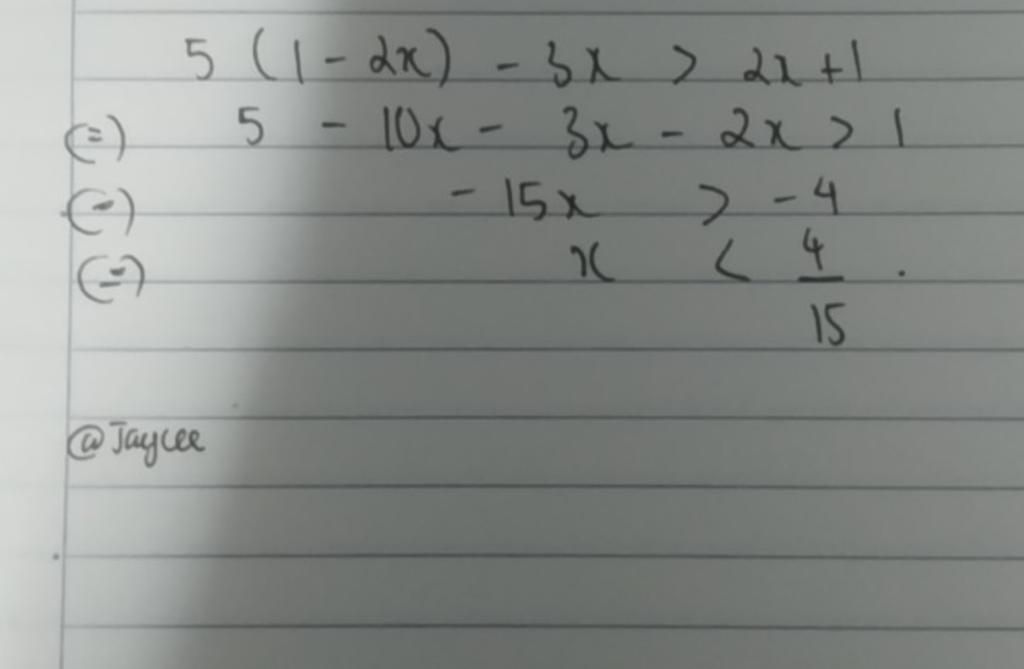 5 (1 - 2x) - 3x > 2x + 1
(=) 5 - 10x - 3x - 2x > 1
(=) - 15x > - 4
(=) x < 4/15 .
@Jaycee